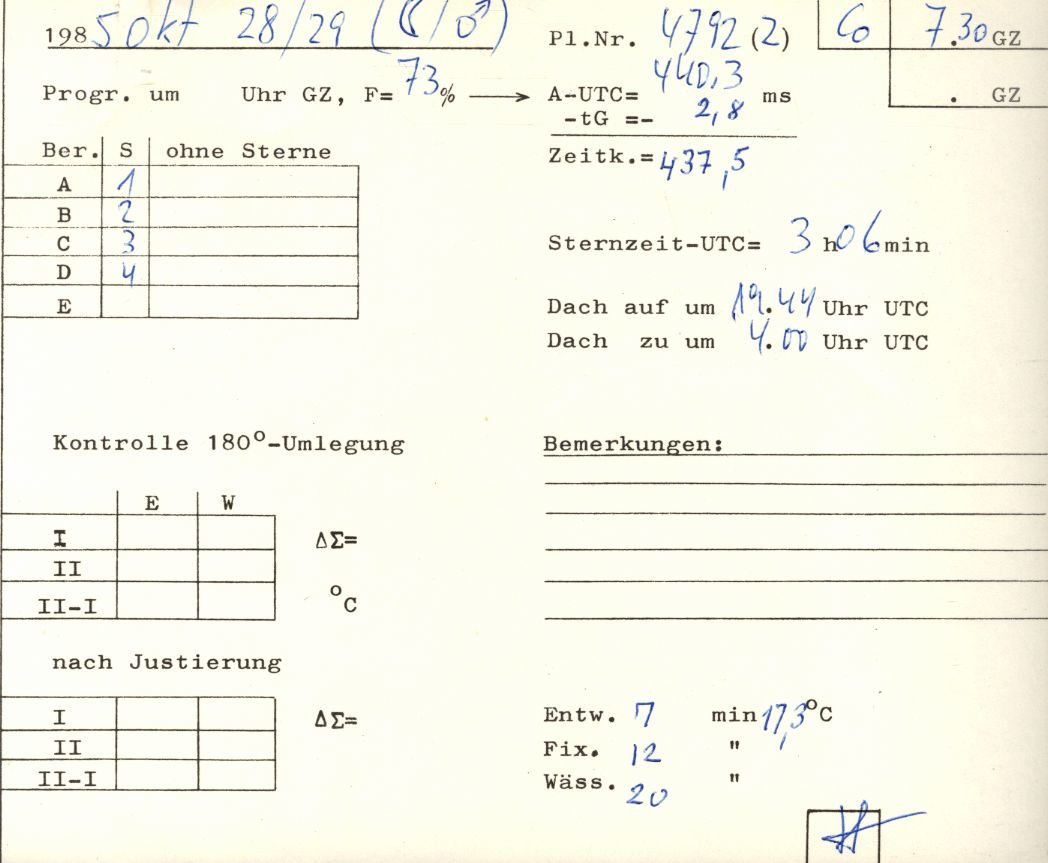 1985 Okt 28/29 (☾/♂) Pl.Nr. 4792 (2) Co 7.30 GZ
Progr. um Uhr GZ, F= 73% → A-UTC= 440,3 ms . GZ
-tG =- 2,8
Ber. S ohne Sterne Zeitk.= 437,5
A 1
B 2
C 3 Sternzeit-UTC= 3 h 06 min
D 4
E Dach auf um 19.44 Uhr UTC
Dach zu um 4.00 Uhr UTC
Kontrolle 180°-Umlegung Bemerkungen:
E W
I ΔΣ=
II
II-I °C
nach Justierung
I ΔΣ= Entw. 7 min 17,3 °C
II Fix. 12 "
II-I Wäss. 20 "